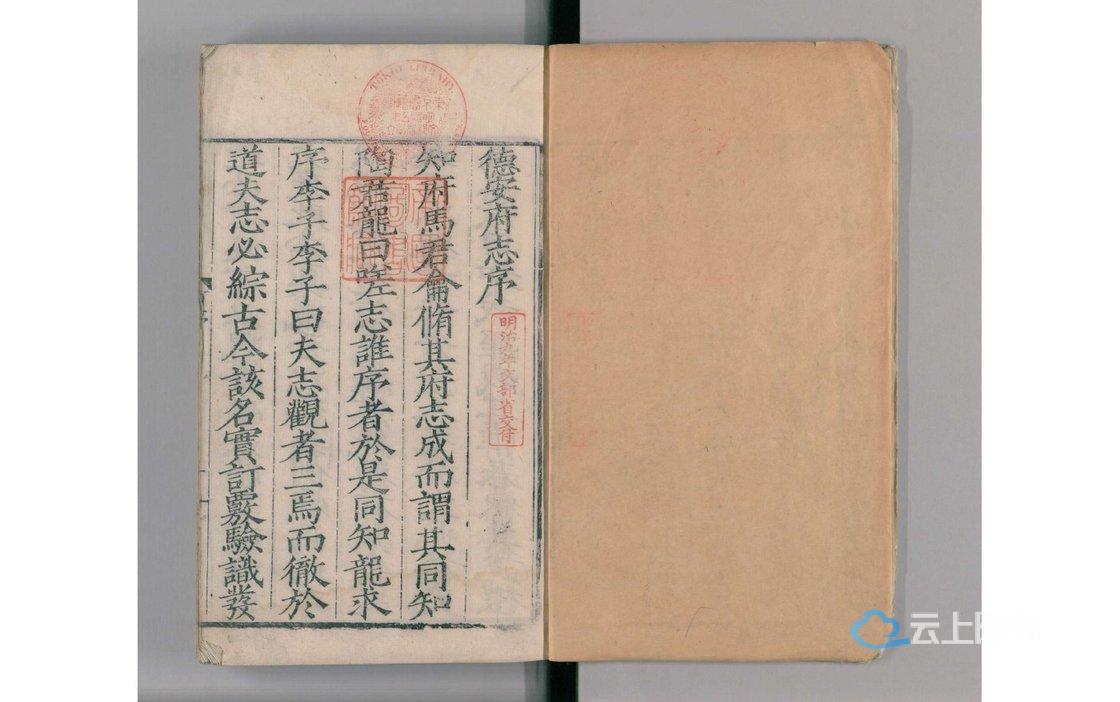 德安府志序
知府馬君侖脩其府志成而謂其同知
陶君龍曰嗟志誰序者於是同知龍求
序李子李子曰夫志觀者三焉而徹於
道夫志必綜古今該名實訂覈驗識發
明治九年文部省交付
TOKIO LIBRARY
云上